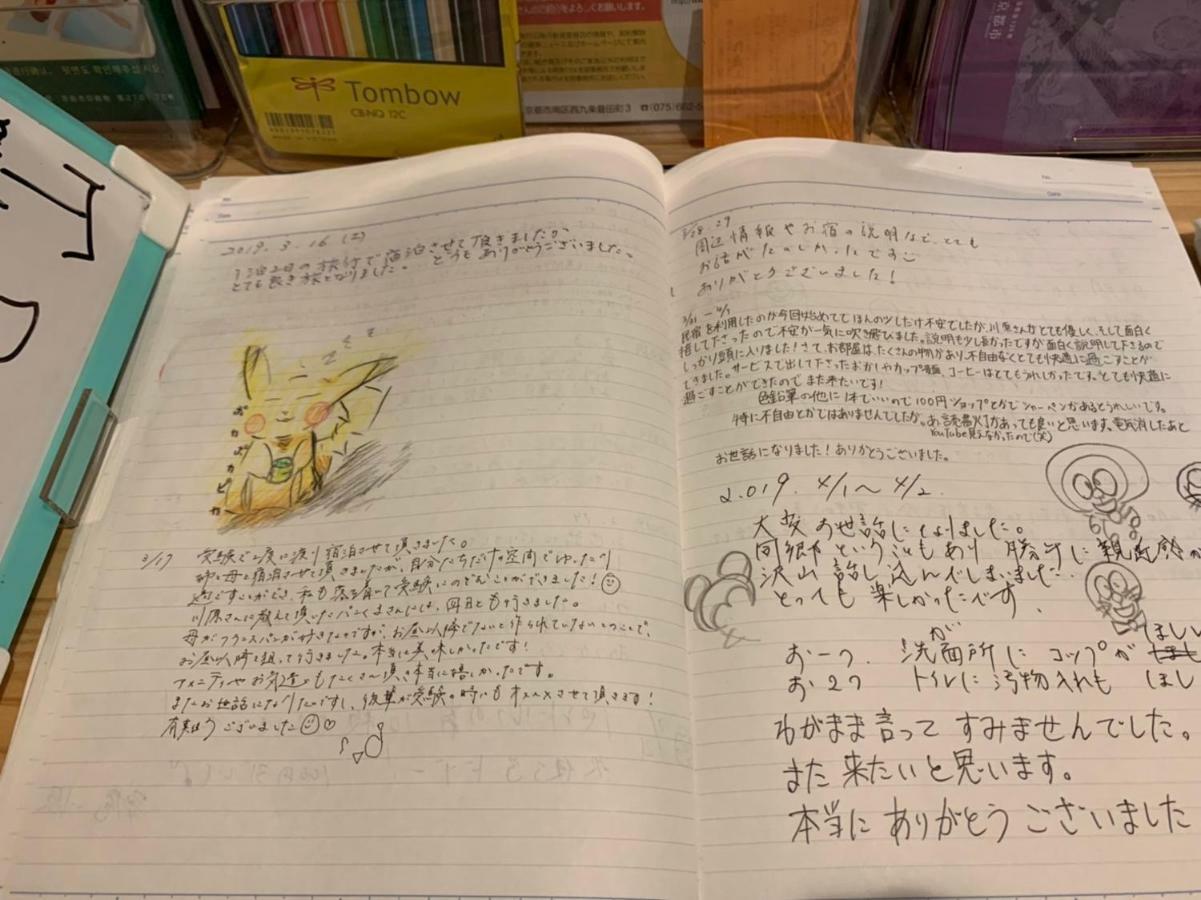 Tombow
CB-NQ 12C
京都市南区西九条豊田町3
(075)662-5
No.
Date
No.
Date
2019. 3. 16 (土)
1泊2日の旅行で宿泊させて頂きましたが、
とても良き旅となりました。どうもありがとうございました。
zzz
おかぴカピカ
3/17
受験で2度に渡り宿泊させて頂きました。
姉と母と宿泊させて頂きましたが、自分たちだけの空間でゆったり
過ごすことができ、私も落ち着いて受験にのぞむことができました!
川原さんに教えて頂いたパンくまさんには、両日とも行きました。
母がフランスパンが好きなのですが、お昼以降でないと作られていないとのことで、
お昼以降を狙って行きました。本当に美味しかったです!
アメニティやお気遣いもたくさん頂き本当に嬉しかったです。
またお世話になりたいですし、後輩が受験の時にもオススメさせて頂きます!
有難うございました♡
3/28. 29
周辺情報やお宿の説明など、とても
お話がたのしかったです
ありがとうございました!
3/31 ー 4/1
民宿を利用したのが今回始めてでほんの少しだけ不安でしたが、川原さんがとても優しく、そして面白く
接して下さったので不安が一気に吹き飛びました。説明も少し長かったですが面白く説明して下さるので
しっかり頭に入りました!さて、お部屋は、たくさんの物があり、不自由なくとても快適に過ごすことが
できました。サービスで出して下さったおかしやカップ麺、コーヒーはとてもうれしかったです。とても快適に
過ごすことができたのでまた来たいです!
色鉛筆の他に1本でいいので100円ショップとかでシャーペンがあるとうれしいです。
特に不自由とかではありませんでしたが、あ、読書灯があっても良いと思います。電気消したあと
YouTube見えなかったので(笑)
お世話になりました!ありがとうございました。
2019. 4/1~4/2.
大変お世話になりました。
同郷ということもあり
沢山 話し込んでしまいました.
とっても楽しかったです.
お一つ. 洗面所に コップが ほしい
お2つ トイレに 汚物入れも ほし
わがまま言って すみませんでした。
また 来たいと思います。
本当に ありがとう ございました